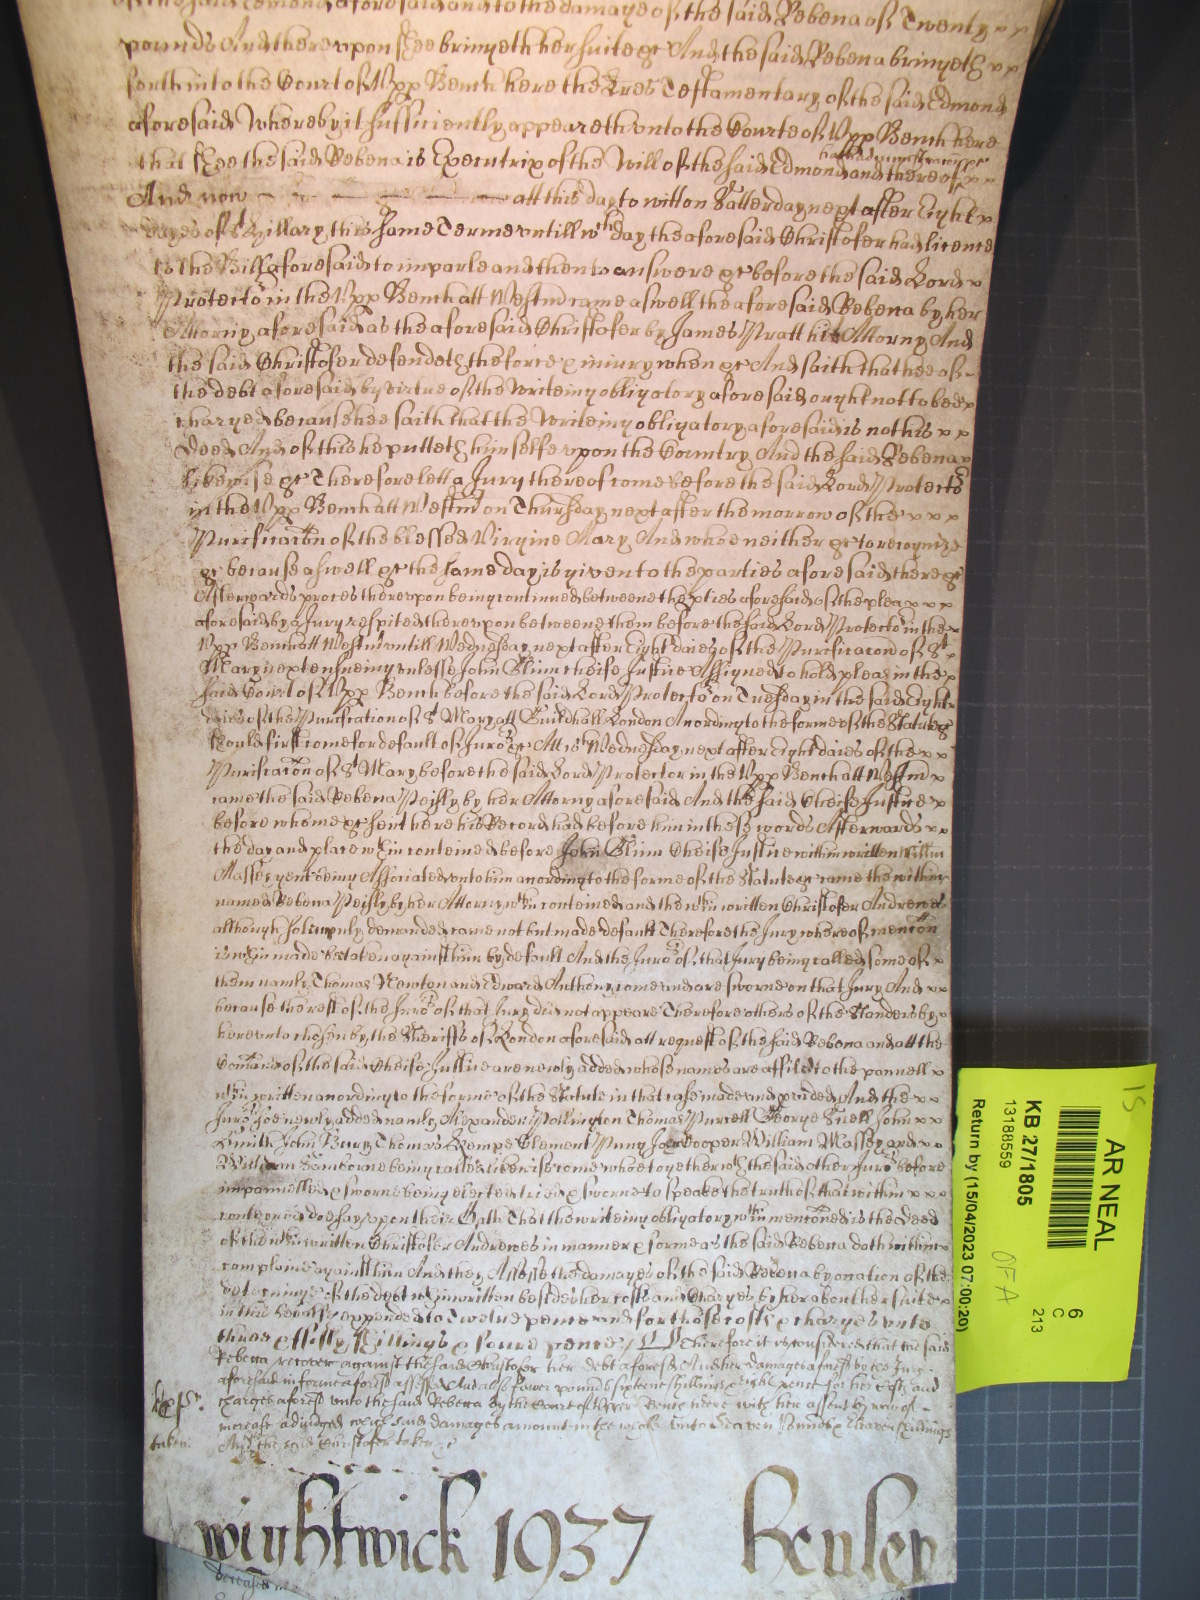 of the said Edmond aforesaid and to the damage of the said Rebena of Twenty x x
pounds And thereupon shee bringeth her suite &c And the said Rebena bringeth x x
forth into the Court of Upp Bench here the Lres Testamentary of the said Edmond
aforesaid Whereby it sufficiently appeareth unto the Courte of Upp Bench here
that shee the said Rebena is Executrix of the Will of the said Edmond and thereof x x
And now att this day to witt on Satterday next after Eight x
dayes of St Hillary this same Terme untill wch day the aforesaid Christofer had licence
to the Bill aforesaid to imparle and then to answere &c before the said Lord x
Protector in the Upp Bench att Westm came aswell the aforesaid Rebena by her
Attorny aforesaid as the aforesaid Christofer by James Pratt his Attorny And
the said Christofer defendeth the force & iniury when &c And saith that hee of
the debt aforesaid by virtue of the writeing obligatory aforesaid ought not to bee x
charged because hee saith that the Writeing obligatory aforesaid is not his x x
Deed And of this he putteth himselfe upon the Country And the said Rebena x
likewise &c Therefore lett a Jury thereof come before the said Lord Protector
in the Upp Bench att Westm on Thursday next after the morrow of the x x x
Purificacon of the blessed Virgine Mary And whoe neither &c to recognize
&c because aswell &c the same day is given to the parties aforesaid there &c
Afterwards proces thereupon being continued betweene the pties aforesaid of the plea x x x
aforesaid by a Jury respited thereupon betweene them before the said Lord Protector in the x
Upp Bench att Westm untill Wednesday next after Eight daies of the Purificacon of St x
Mary next ensueing unlesse John Glinn cheife Justice Assigned to hold pleas in the x
said Court of Upp Bench before the said Lord Protector on Tuesday in the said Eight
daies of the Purification of St Mary att Guildhall London According to the forme of the Statute
should first come for default of Juros &c Att wch Wednesday next after Eight daies of the x x
Purificacon of St Mary before the said Lord Protector in the Upp Bench att Westm x
came the said Rebena by her Attorny aforesaid And the said Cheife Justice x
before whome &c sent here his Record had before him in these words Afterwards x x
the day and place wthin conteined before John Glinn Cheife Justice within written William
Massey gent being Associated unto him according to the forme of the Statute &c came the within
named Rebena by her Attorny wthin conteined and the wthin written Christofer Andrewes
although solempnly demanded came not but made default Therefore the Jury whereof mencon
is wthin made be taken against him by default And the Juros of that Jury being called some of x
them namely Thomas Newton and Edward Anthony come and are sworne on that Jury And x x
because the rest of the Juros of that Jury did not appeare Therefore others of the standers by x
hereunto chosen by the Sheriffs of London aforesaid att request of the said Rebena and att the
Comand of the said Cheife Justice are newly added whose names are affiled to the pannell x
wthin written according to the forme of the Statute in that case made and pvided And the x x
Juros soe newly added namely Alexander Pollington Thomas Purcell George Snell John x x
Smith John Bury Thomas Kempe Clement Cooper William Massey and x x
William Samborne being called likewise come whoe together wth the said other Juros before
impannelled & sworne being elected tried & sworne to speake the truth of that within x x x
conteined doe say upon their Oath That the writeing obligatory wthin menconed is the deed
of the within written Christofer Andrewes in manner & forme as the said Rebena doth within x
complaine against him And they Assesse the damages of the said Rebena by occasion of the
deteining of the debt wthin written besides her costs and Charges by her about her suite x
in this behalf expended to Twelve pence and for those costs & charges unto
three & fifty shillings & foure pence Therefore it is considered that the said
Rebena recover against the said Christofer her debt aforesd And her damages aforesd by the Jury
aforesaid in forme aforesd assessed And alsoe fower pounds shillings & eight pence for her Costs and
charges aforesd unto the said Rebena by the Court of Upper Bench here with her assent by way of
increase adiudged which said damages amount in the whole unto Seaven Pounds Eleaven shillings
And the said Christofer taken &c
taken
wightwick 1937 Henley
deceased
15
AR NEAL
6
C
213
KB 27/1805
13188559
Return by (15/04/2023 07:00:20)